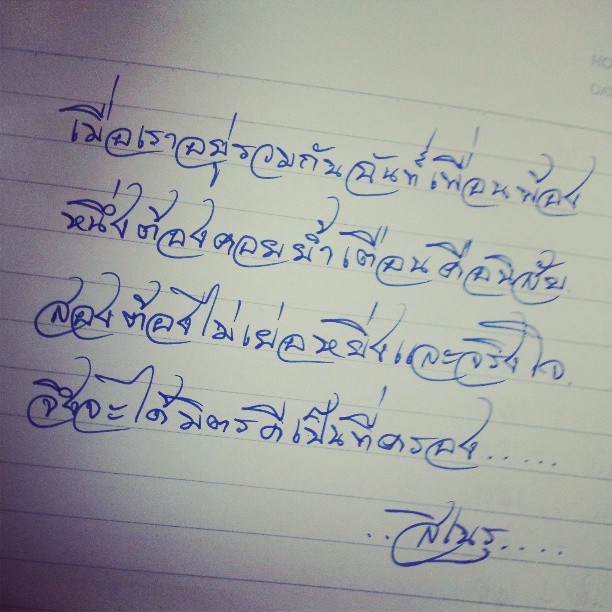 เมื่อเราอยู่รวมกันฉันท์เพื่อนพ้อง
หนึ่งต้องคอยย้ำเตือนคือนิสัย
สองต้องไม่เย่อหยิ่งและจริงใจ
จึงจะได้มิตรดีเป็นที่ครอง.....
..สิเนรุ....
HO
DA